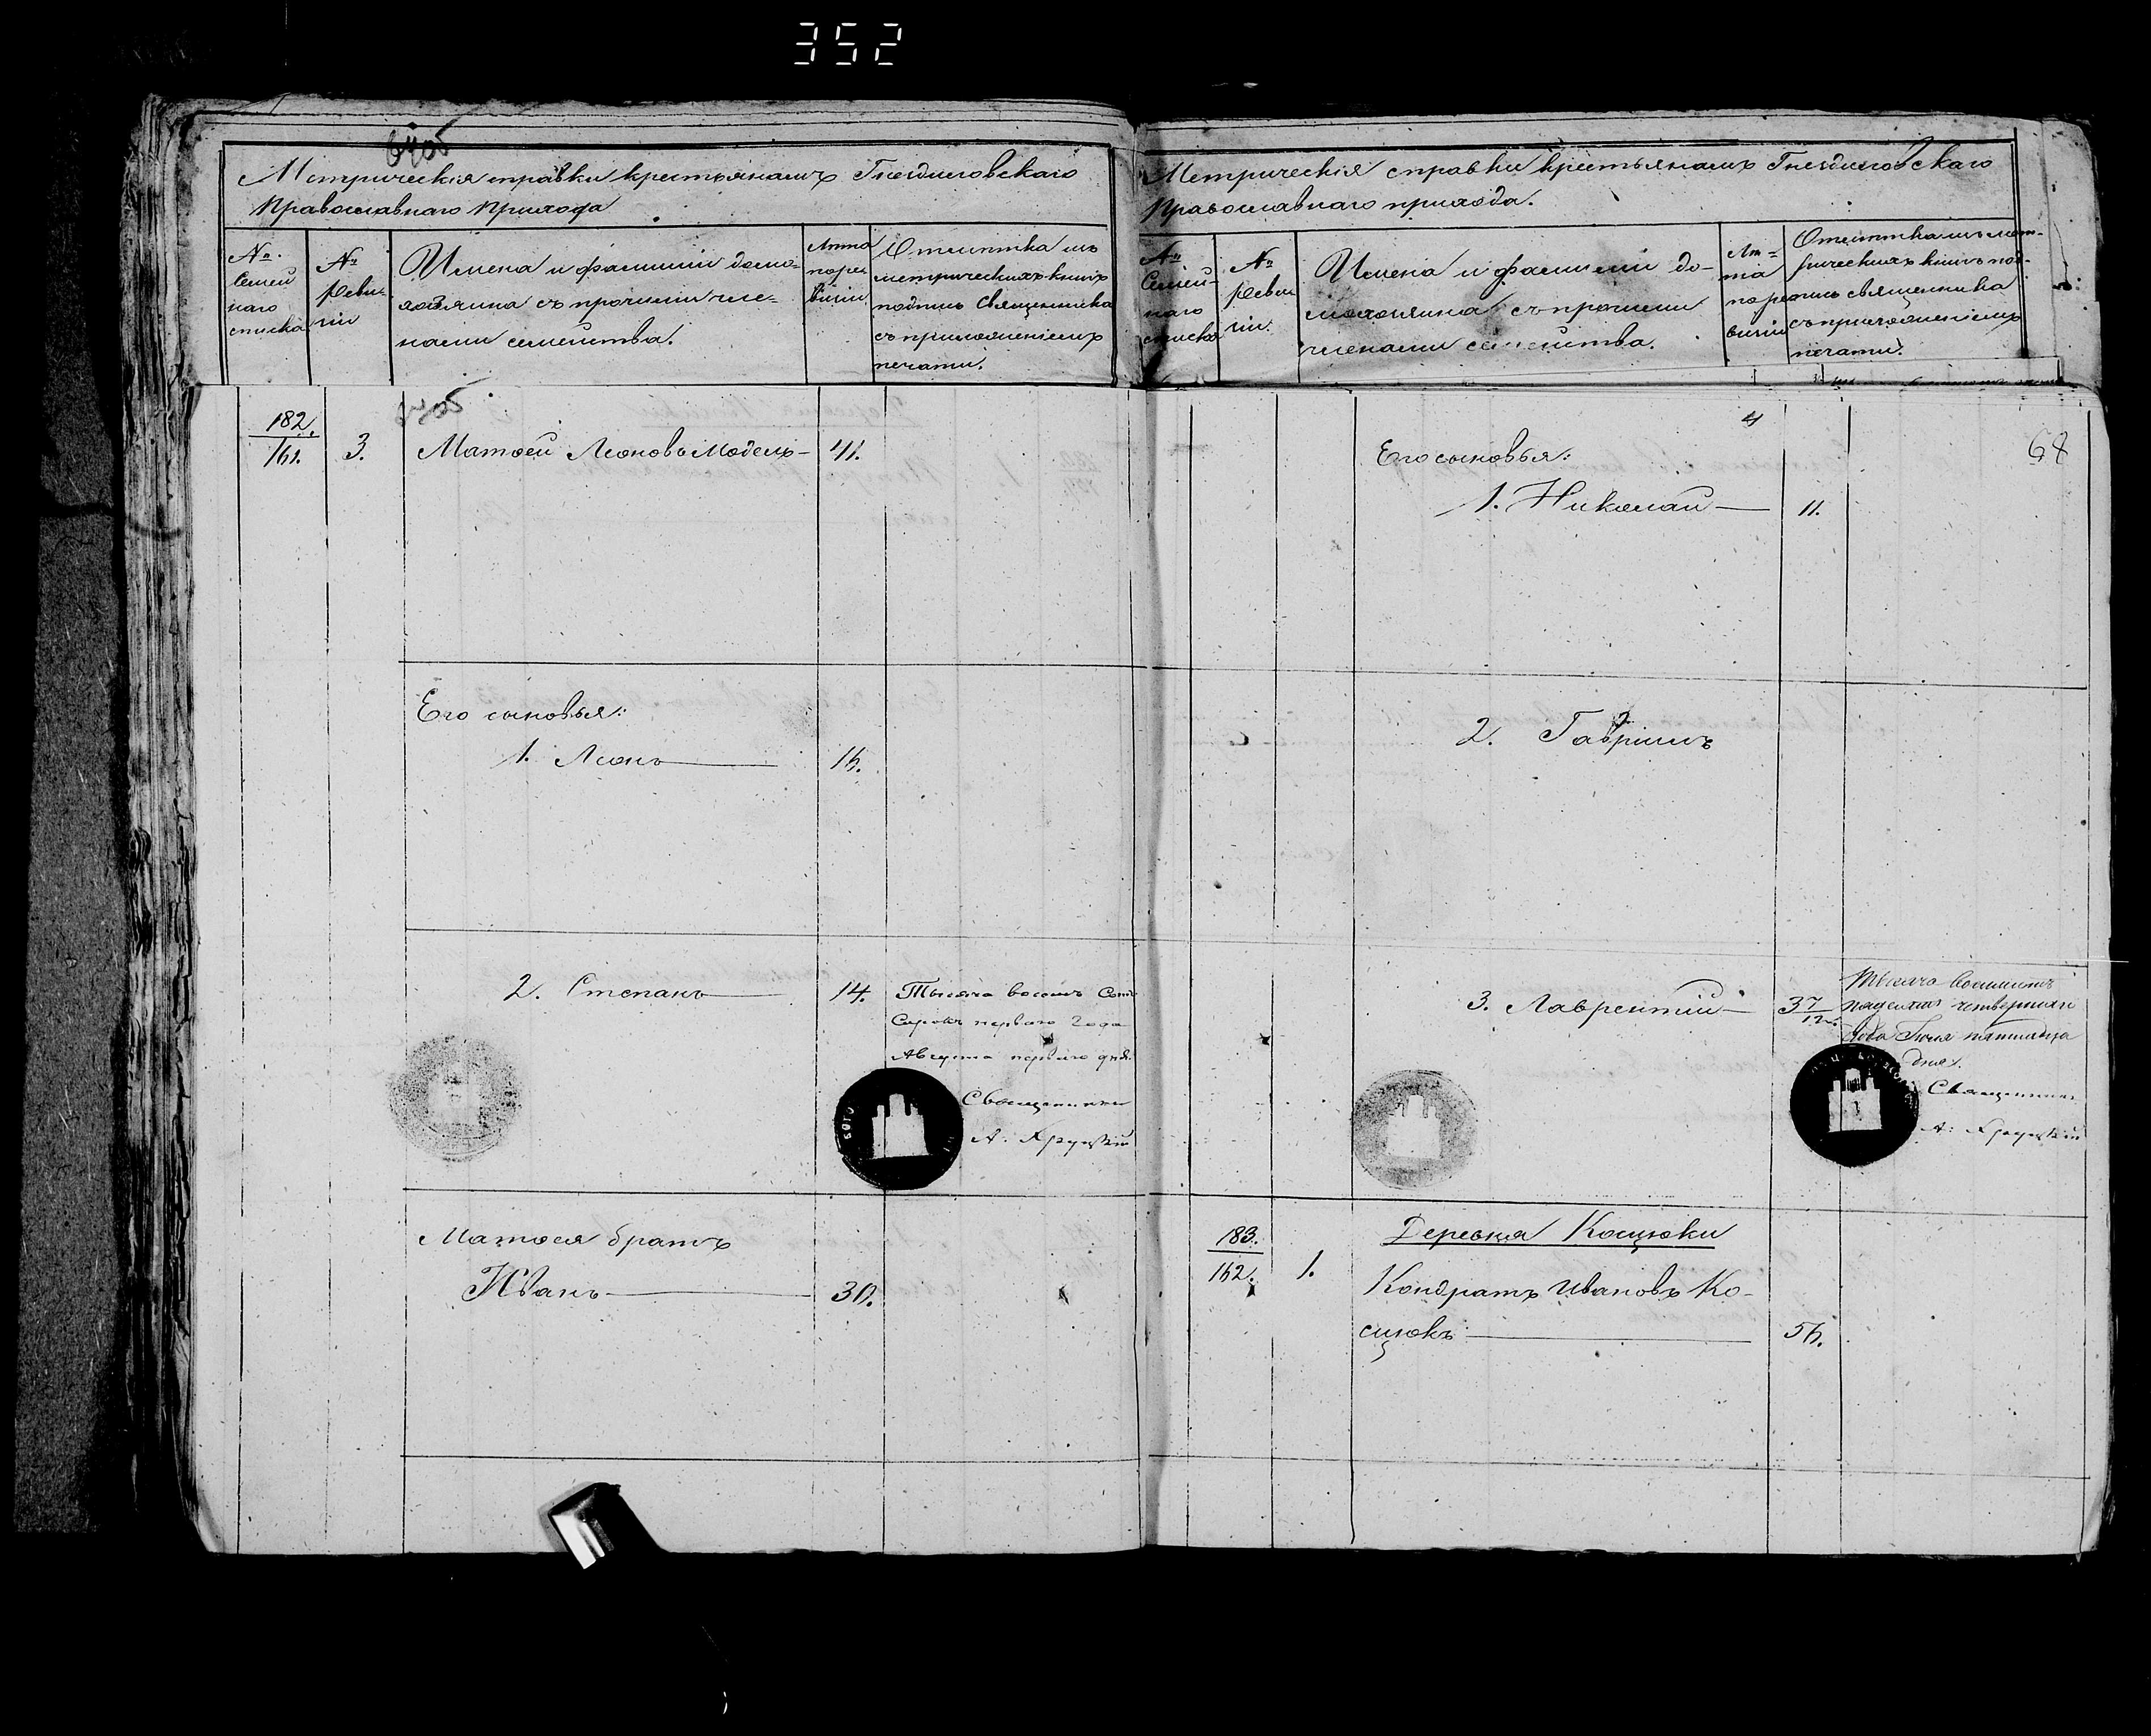 352
Метрическія справки крестьянамъ Гнездиловскаго
Православнаго Прихода
№
Семей
наго
списка
№
Реви-
зіи
Имена и фамиліи домо-
хозяина съ прочими чле-
нами семейства.
Лета
по ре
визіи
Отметка изъ
метрическихъ книгъ
подпись Священника
съ приложеніемъ
печати.
182.
161.
3.
Матвей Леоновъ
41.
Его сыновья:
1. Леонъ
16.
2. Степанъ
14.
Тысяча восемь Сотъ
Сорокъ перваго Года
Августа перваго дня.
Священникъ
А.
Матвея братъ
Иванъ
30.
Метрическія справки крестьянамъ Гнездиловскаго
Православнаго прихода.
№
Семей-
наго
списка
№
Ревы
зіи.
Имена и фамиліи до-
мохозяина съ прочими
членами семейства.
Лѣ-
та
по ре
визіи
Отметка изъ мет-
рическихъ книгъ под-
пись священника
съ приложеніемъ
печати.
68
Его сыновья:
1. Николай
11.
2. Гавріилъ
3. Лаврентій
3 7/12.
Тысяча восемьсотъ
пядесятъ четвертаго
Года Іюля
дня.
Священникъ
А:
183.
162.
1.
Деревня Косцюки
Кондратъ Ивановъ Ко-
сцюкъ
56.